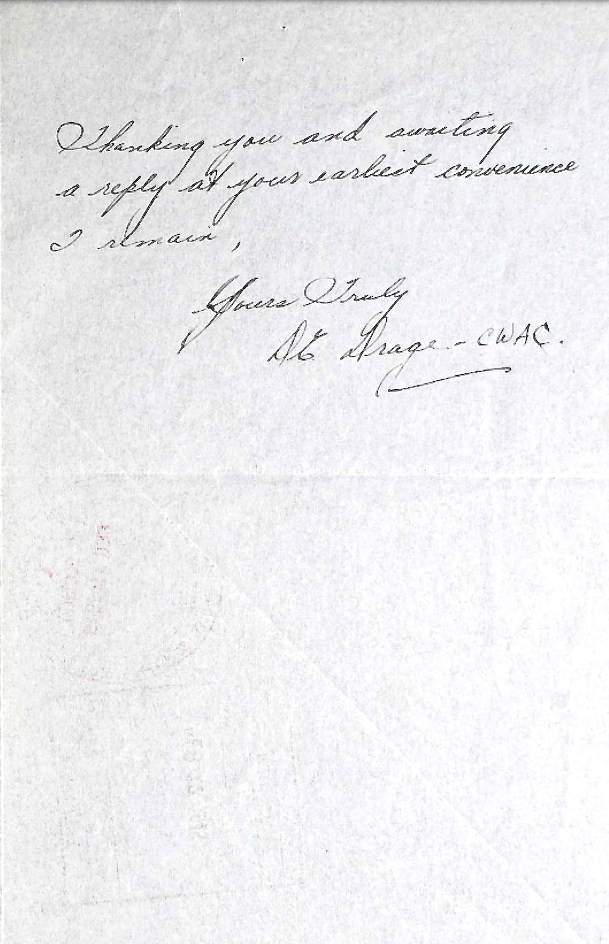 Thanking you and awaiting
a reply at your earliest convenience
I remain,
Yours Truly
DE Drage - CWAC.